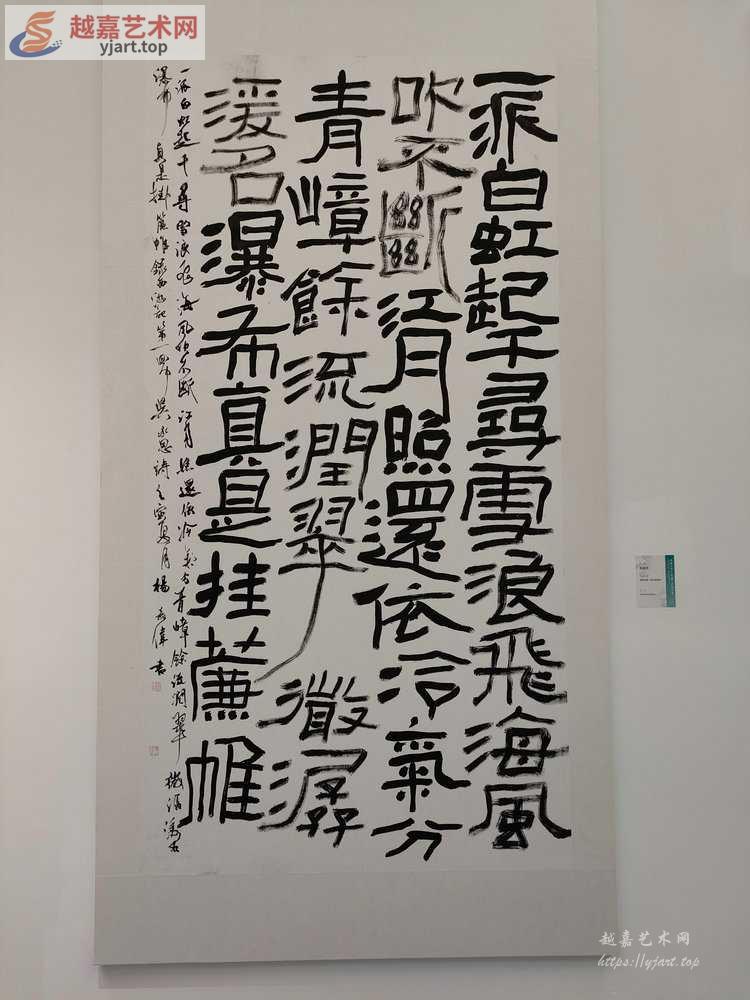 越嘉艺术网
yjart.top
一派白虹起千尋雪浪飛海風
吹不斷江月照還依冷氣分
青嶂餘流潤翠微潺
湲名瀑布真是挂簾帷
一派白虹起千尋雪浪飛海風吹不斷江月照還依冷氣分青嶂餘流潤翠微潺湲名
瀑布真是掛簾帷錄西遊記第一回中吳承恩詩夏月楊偉書
越嘉艺术网
https://yjart.top